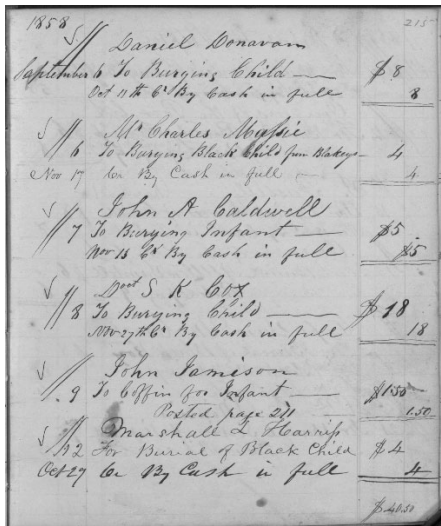 1858 215
Daniel Donavam
September 6 To Burying Child $8
Oct 11th Cr By Cash in full 8
Mr Charles Massie
6 To Burying Black Child from Blakeys 4
Nov 17 Cr By Cash in full 4
John A Caldwell
7 To Burying Infant $5
Nov 15 Cr By Cash in full $5
Doct S K Cox
8 To Burying Child $18
Nov 27th Cr By Cash in full 18
John Jamison
9 To Coffin foo Infant $1.50
Posted page 211 1.50
Marshall L Harris
12 For Burial of Black Child $4
Oct 27 Cr By Cash in full 4
$40.50